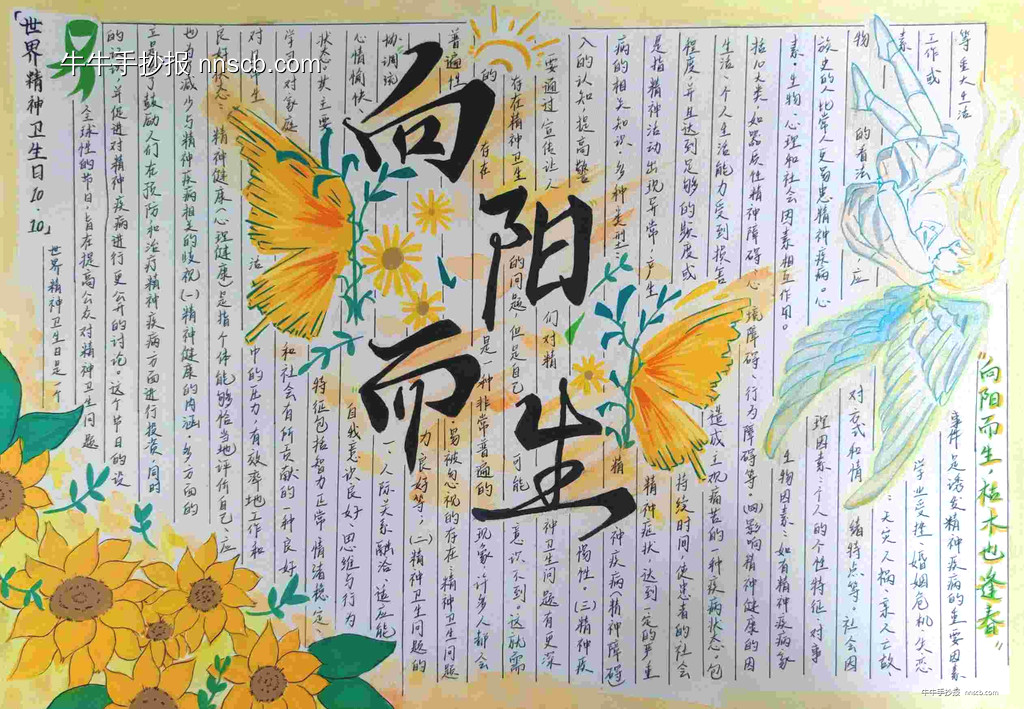 牛牛手抄报 nnscb.com
「世界精神卫生日10.10」
向阳而生
世界精神卫生日是一个
全球性的节日,旨在提高公众对精神卫生问题
的 并促进对精神疾病进行更公开的讨论。这个节日的设
立是为了鼓励人们在预防和治疗精神疾病方面进行投资,同时
也为减少与精神疾病相关的歧视(一)精神健康的内涵,多方面的
良好状态: 精神健康(心理健康)是指个体能够恰当地评价自己、应
对日 生活 中的压力,有效率地工作和
学习,对家庭 和社会有所贡献的一种良好
状态,其主要 特征包括智力正常、情绪稳定、
心情愉快 自我意识良好、思维与行为
协调统 一、人际关系融洽、适应能
力良好等;(二)精神卫生问题的
普遍性 易被忽视的存在:精神卫生问题
的 存在 是一种非常普遍的 现象,许多人都会
存在精神卫生 的问题,但是自己 可能 意识不到。这就需
要通过宣传让人 们对精 神卫生问题有更深
入的认知,提高警 惕性。(三)精神疾
病的相关知识、多种类型: 精 神疾病(精神障碍
是指精神活动出现异常,产生 精神症状,达到一定的严重
程度,并且达到足够的频度或 持续时间,使患者的社会
生活、个人生活能力受到损害 造成主观痛苦的一种疾病状态。包
括10大类,如器质性精神障碍、心 境障碍、行为障碍等。(四)影响精神健康的因
素、生物、心理和社会因素相互作用。 生物因素:如有精神疾病家
族史的人比常人更易患精神疾病。心 理因素:个人的个性特征、对事
物 的看法、应 对方式和情 绪特点等。社会因
素 :天灾人祸、亲人亡故、
工作或 学业受挫、婚姻危机、失恋
等重大生活 事件,是诱发精神疾病的重要因素
“向阳而生,枯木也逢春”
牛牛手抄报 nnscb.com